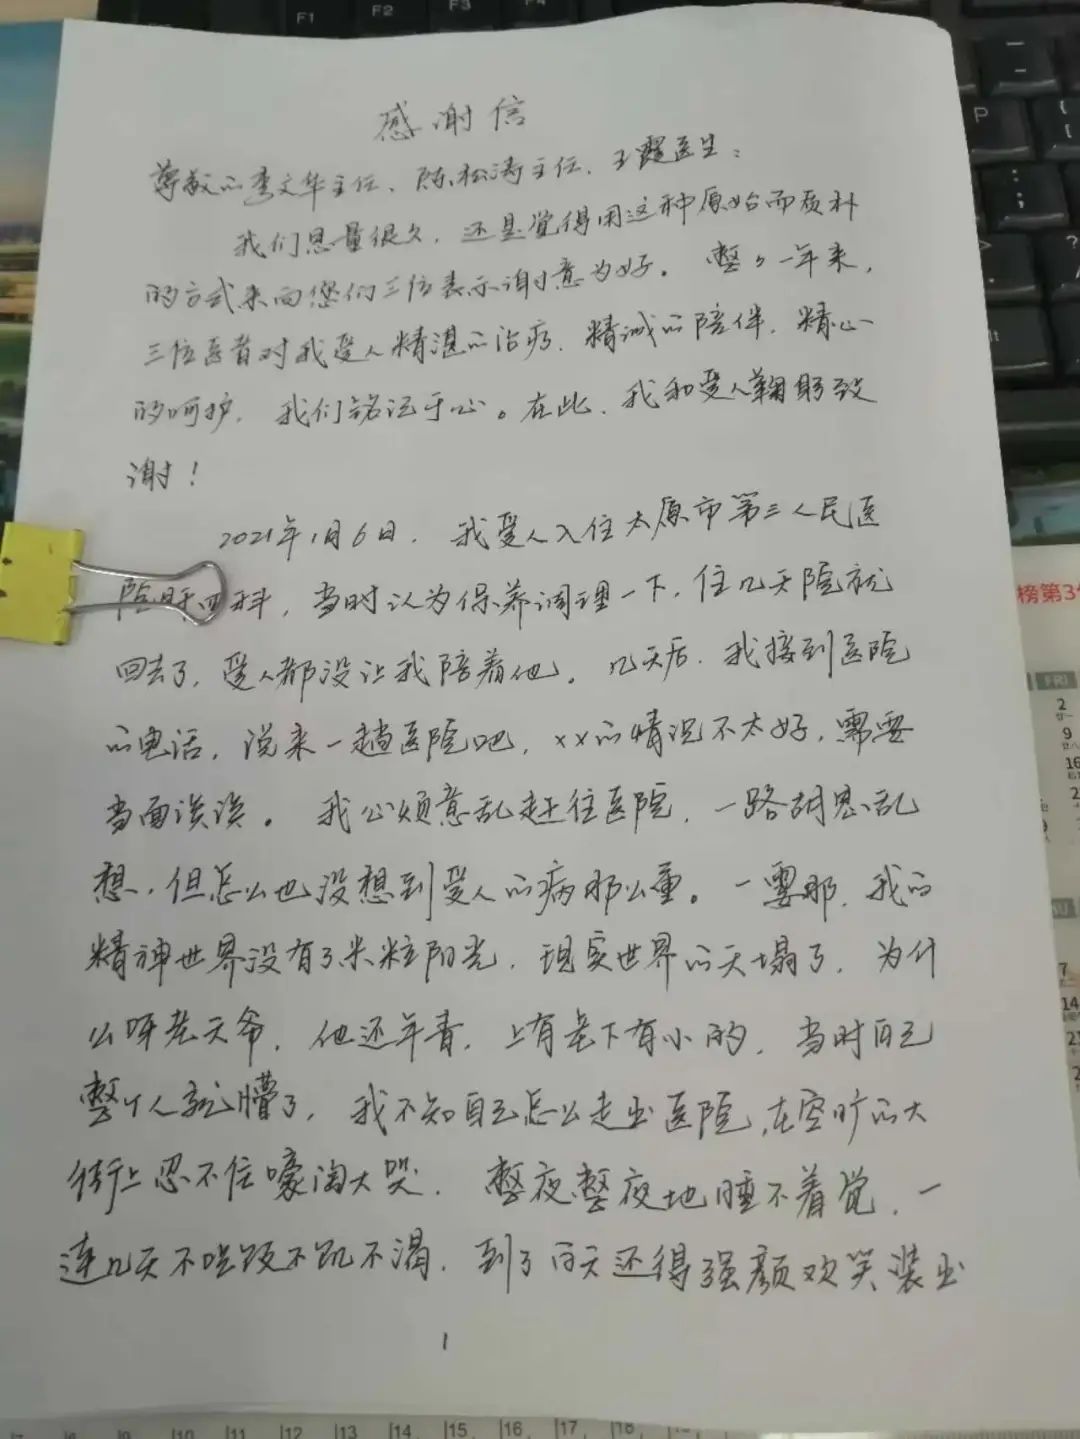 感谢信
尊敬的李文华主任、陈松涛主任、王霞医生：
我们思量很久，还是觉得用这种原始而质朴
的方式来向您们三位表示谢意为好。整了一年来，
三位医者对我爱人精湛的治疗、精诚的陪伴、精心
的呵护，我们铭记于心。在此，我和爱人鞠躬致
谢！
2021年1月6日，我爱人入住太原市第三人民医
院肝四科，当时认为保养调理一下，住几天院就
回去了，爱人都没让我陪着他。几天后，我接到医院
的电话，说来一趟医院吧，xx的情况不太好，需要
当面谈谈。我心烦意乱赶往医院，一路胡思乱
想，但怎么也没想到爱人的病那么重。一霎那，我的
精神世界没有了米粒阳光，现实世界的天塌了，为什
么呀老天爷，他还年青，上有老下有小的，当时自己
整个人就懵了，我不知自己怎么走出医院，在空旷的大
街上忍不住嚎淘大哭，整夜整夜地睡不着觉，一
连几天不吃饭不饥不渴，到了白天还得强颜欢笑装出
1
F1 F2 F3 F4
P
榜第3
FRI
2
9
16
7
14
10 11 12 13 14 15 16 17 18